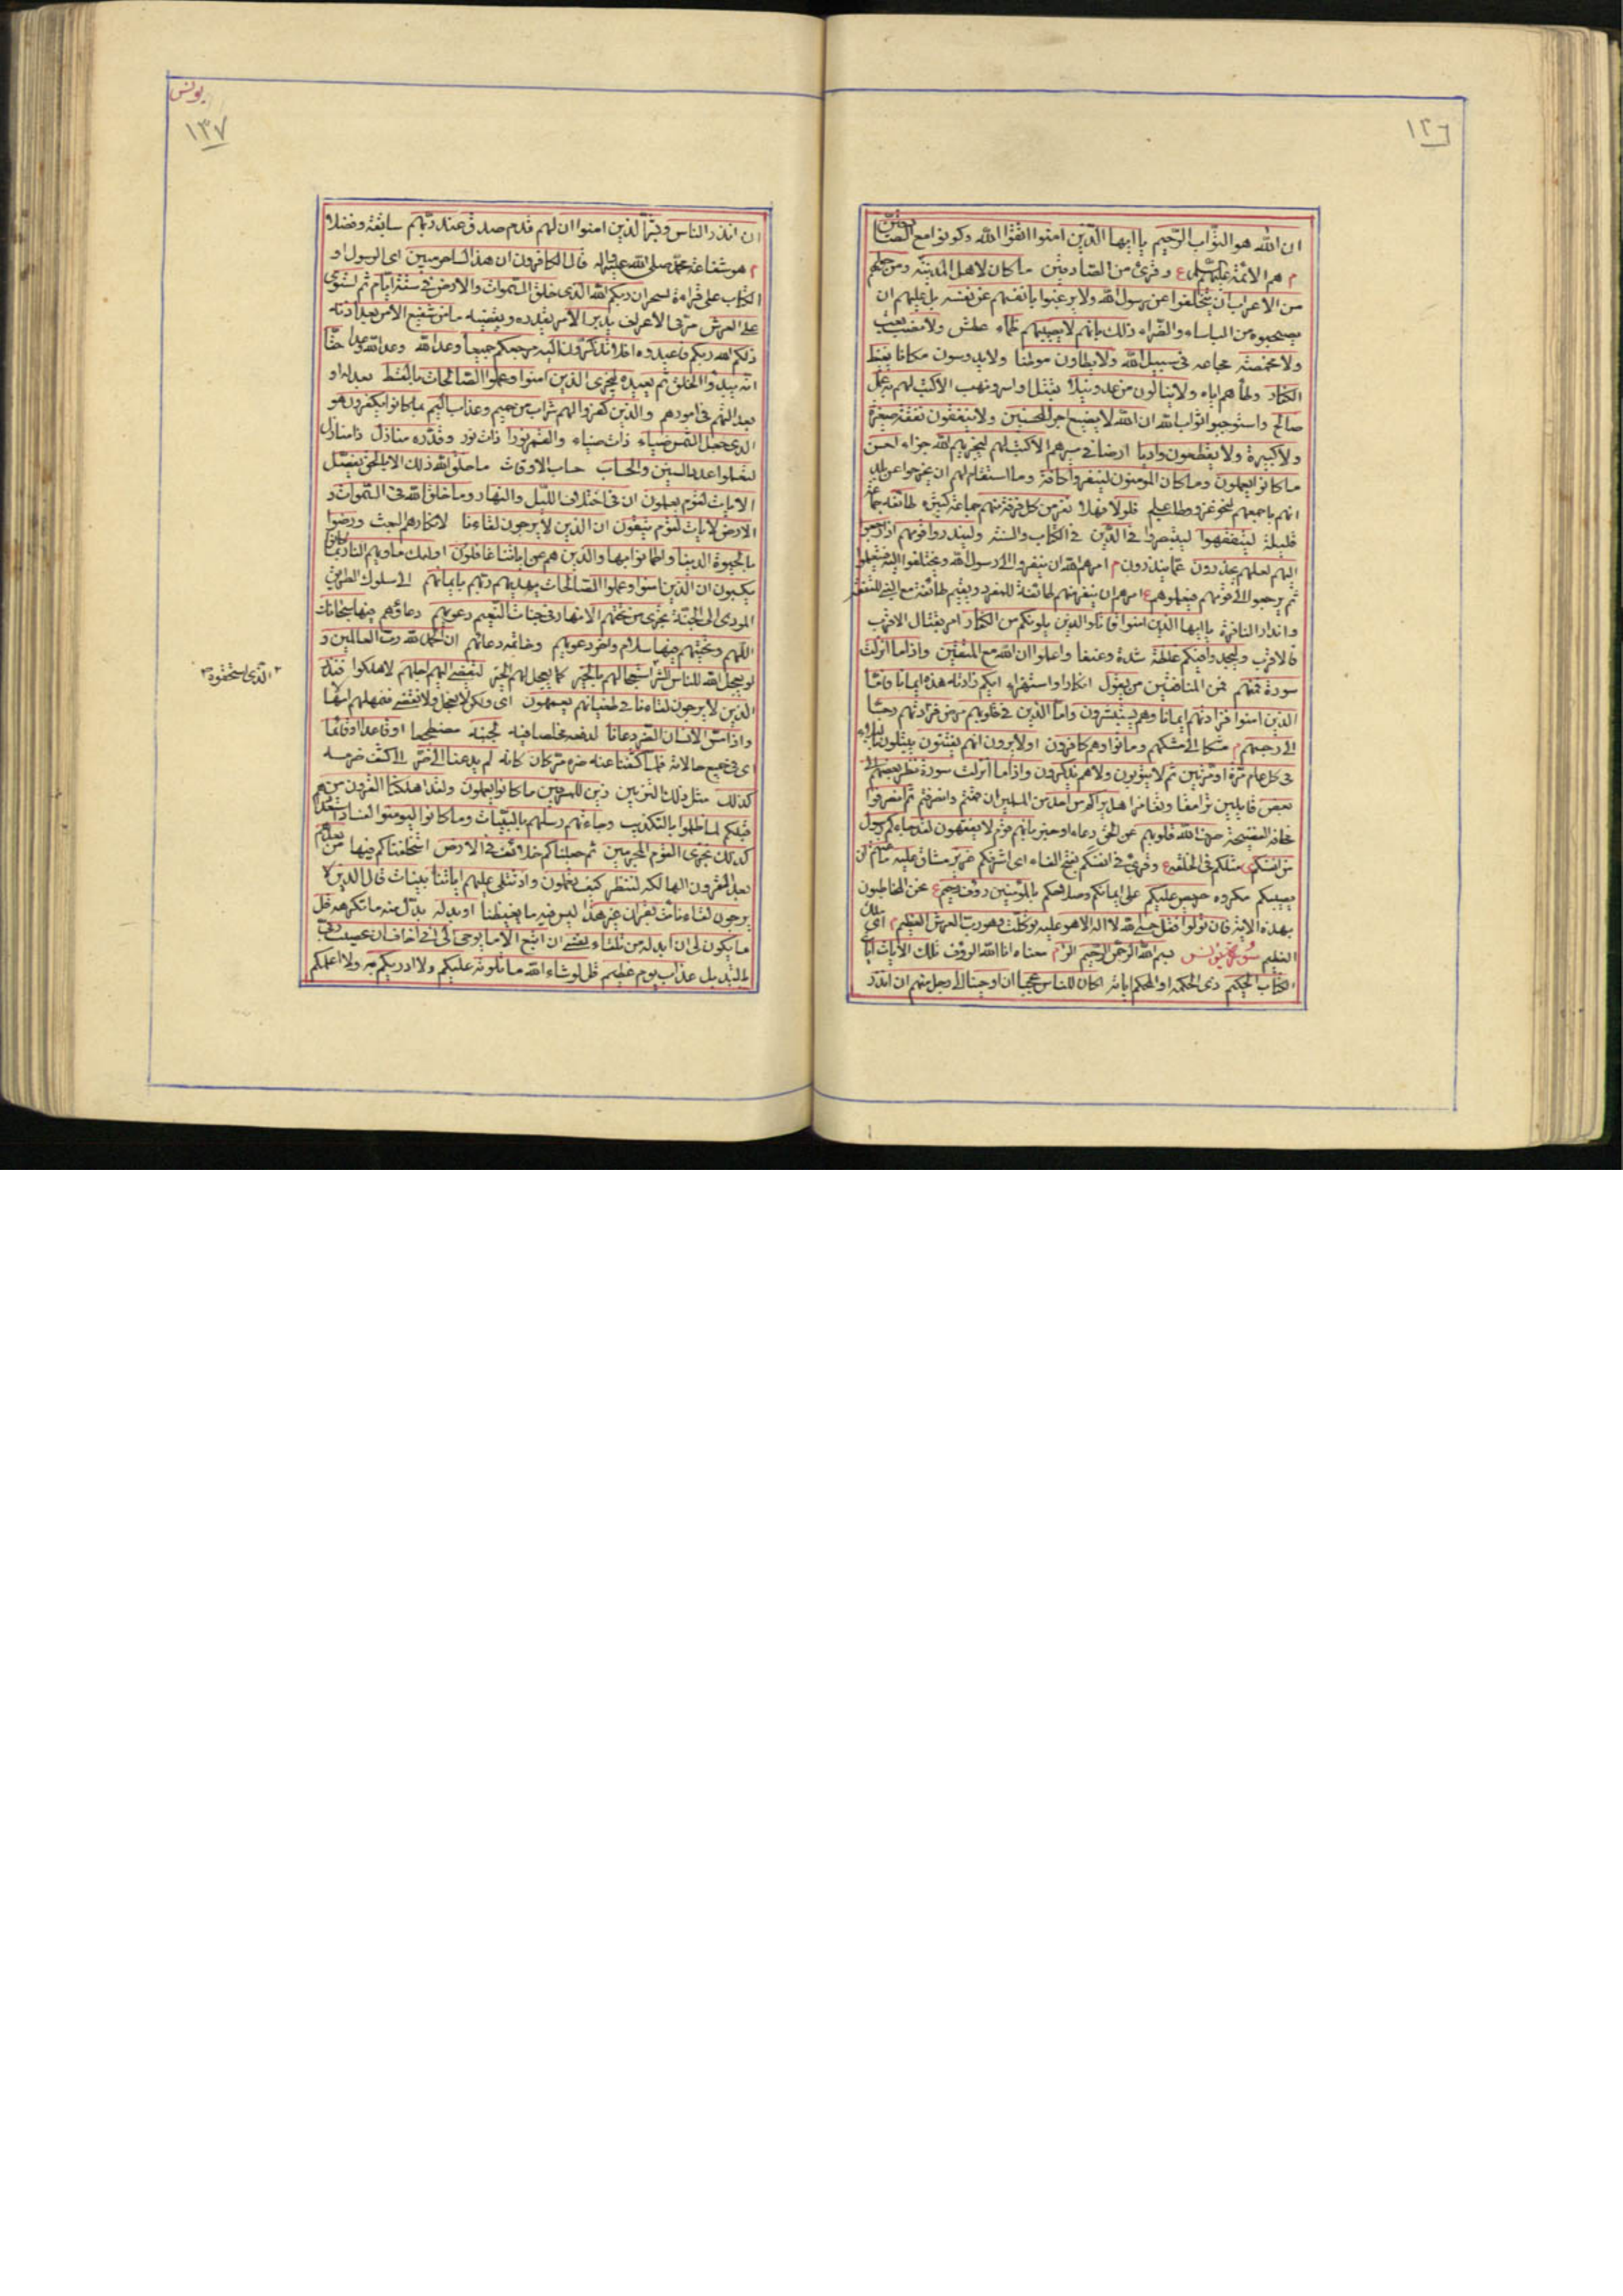 ١٢٦
ان الله هو التواب الرحيم يا ايها الذين امنوا اتقوا الله وكونوا مع الصادقين
م هم الائمة عليهم السلم ع وقرئ من الصادقين ما كان لاهل المدينة ومن حولهم
من الاعراب ان يتخلفوا عن رسول الله ولا يرغبوا بانفسهم عن نفسه بل عليهم ان
يصحبوه من الباساء والضراء ذلك بانهم لا يصيبهم ظماء عطش ولا نصب تعب
ولا مخمصة مجاعه فى سبيل الله ولا يطاون موطئا ولا يدوسون مكانا يغيظ
الكفار وطأهم اياه ولا ينالون من عدو نيلا بقتل او اسر ونهب الا كتب لهم به عمل
صالح واستوجبوا ثواب الله ان الله لا يضيع اجر المحسنين ولا ينفقون نفقة صغيرة
ولا كبيرة ولا يقطعون واديا ارضا فى سيرهم الا كتب لهم ليجزيهم الله جزاء احسن
ما كانوا يعملون وما كان المؤمنون لينفروا كافة وما استقام لهم ان يخرجوا عن بلد
انهم باجمعهم لنحو غزو وطلب علم فلولا فهلا نفر من كل فرقة منهم جماعة كثيرة طائفة جماعة
قليلة ليتفقهوا ليتبصروا فى الدين فى الكتاب والسنة ولينذروا قومهم اذا رجعوا
اليهم لعلهم يحذرون عما ينذرون م امرهم الله ان ينفروا الى رسول الله ويختلفوا اليه فيتعلموا
ثم يرجعوا الى قومهم فيعلموهم ع امرهم ان ينفر منهم طائفة ويقيم طائفة للتفقه
وانذار النافرة يا ايها الذين امنوا قاتلوا الذين يلونكم من الكفار امر بقتال الاقرب
فالاقرب وليجدوا فيكم غلظة شدة وعنفا واعلموا ان الله مع المتقين واذا ما انزلت
سورة فمنهم فمن المنافقين من يقول انكارا واستهزاء ايكم زادته هذه ايمانا فاما
الذين امنوا فزادتهم ايمانا وهم يستبشرون واما الذين فى قلوبهم مرض فزادتهم رجسا
الى رجسهم م شكا الى شكهم وماتوا وهم كافرون اولا يرون انهم يفتنون يبتلون
فى كل عام مرة او مرتين ثم لا يتوبون ولا هم يذكرون واذا ما انزلت سورة نظر بعضهم الى
بعض قايلين تراهقا هل يراكم من احد من المسلمين ان قمتم وانصرفتم ثم انصرفوا
مخافة الفضيحة صرف الله قلوبهم عن الحق بانهم قوم لا يفقهون لقد جاءكم رسول
من انفسكم مثلكم فى الخلقة وقرئ من انفسكم بفتح الفاء اى اشرفكم عزيز شاق عليه ما عنتم ان
يصيبكم مكروه حريص عليكم على ايمانكم وصلاحكم بالمؤمنين رؤف رحيم ع عن المخاطبون
بهذه الاية فان تولوا فقل حسبى الله لا اله الا هو عليه توكلت وهو رب العرش العظيم م اى الملك
العظيم سورة يونس بسم الله الرحمن الرحيم الر م معناه انا الله الرؤف تلك الايات ايات
الكتاب الحكيم ذى الحكمة او المحكم اياته اكان للناس عجبا ان اوحينا الى رجل منهم ان انذر
يونس
١٣٧
ان انذر الناس وبشر الذين امنوا ان لهم قدم صدق عند ربهم سابقة وفضلا
م هو شفاعة محمد صلى الله عليه واله قال الكافرون ان هذا لساحر مبين اى الرسول او
الكتاب على قراءة لسحر ان ربكم الله الذى خلق السموات والارض فى ستة ايام ثم استوى
على العرش مر فى الاعراف يدبر الامر يقدره ويقضيه ما من شفيع الا من بعد اذنه
ذلكم الله ربكم فاعبدوه افلا تذكرون اليه مرجعكم جميعا وعد الله وعد الله وعدا حقا
انه يبدؤا الخلق ثم يعيده ليجزى الذين امنوا وعملوا الصالحات بالقسط بعدله او
بعدالتهم فى امورهم والذين كفروا لهم شراب من حميم وعذاب اليم بما كانوا يكفرون هو
الذى جعل الشمس ضياء ذات ضياء والقمر نورا ذات نور وقدره منازل ذا منازل
لتعلموا عدد السنين والحساب حساب الاوقات ما خلق الله ذلك الا بالحق يفصل
الايات لقوم يعلمون ان فى اختلاف الليل والنهار وما خلق الله فى السموات و
الارض لايات لقوم يتقون ان الذين لا يرجون لقاءنا لانكارهم البعث ورضوا
بالحيوة الدنيا واطمانوا بها والذين هم عن اياتنا غافلون اولئك ماويهم النار بما كانوا
يكسبون ان الذين امنوا وعملوا الصالحات يهديهم ربهم بايمانهم الى سلوك الطريق
المودى الى الجنة تجرى من تحتهم الانهار فى جنات النعيم دعويهم دعاؤهم فيها سبحانك
اللهم وتحيتهم فيها سلام واخر دعويهم وخاتمة دعائهم ان الحمد لله رب العالمين و
لو يعجل الله للناس الشر استعجالهم بالخير كما يعجل لهم الخير لقضى اليهم اجلهم لاهلكوا فنذر
الذين لا يرجون لقاءنا فى طغيانهم يعمهون اى ولكن لا نعجل ولا نقضى فنمهلهم
واذا مس الانسان الضر دعانا لدفعه مخلصا فيه لجنبه مضطجعا او قاعدا او قائما
اى فى جميع حالاته فلما كشفنا عنه ضره مر كان كانه لم يدعنا الى ضر الى كشف ضر مسه
كذلك مثل ذلك التزيين زين للمسرفين ما كانوا يعملون ولقد اهلكنا القرون من
قبلكم لما ظلموا بالتكذيب وجاءتهم رسلهم بالبينات وما كانوا ليؤمنوا
كذلك نجزى القوم المجرمين ثم جعلناكم خلائف فى الارض استخلفناكم فيها من بعدهم
بعد القرون الهالكة لننظر كيف تعملون واذا تتلى عليهم اياتنا بينات قال الذين لا
يرجون لقاءنا ائت بقران غير هذا ليس فيه ما يغيظنا او بدله بدل منه ما نكرهه قل
ما يكون لى ان ابدله من تلقاء نفسى ان اتبع الا ما يوحى الى انى اخاف ان عصيت ربى
بالتبديل عذاب يوم عظيم قل لو شاء الله ما تلوته عليكم ولا ادريكم به ولا اعلمكم
الذى استحقوه